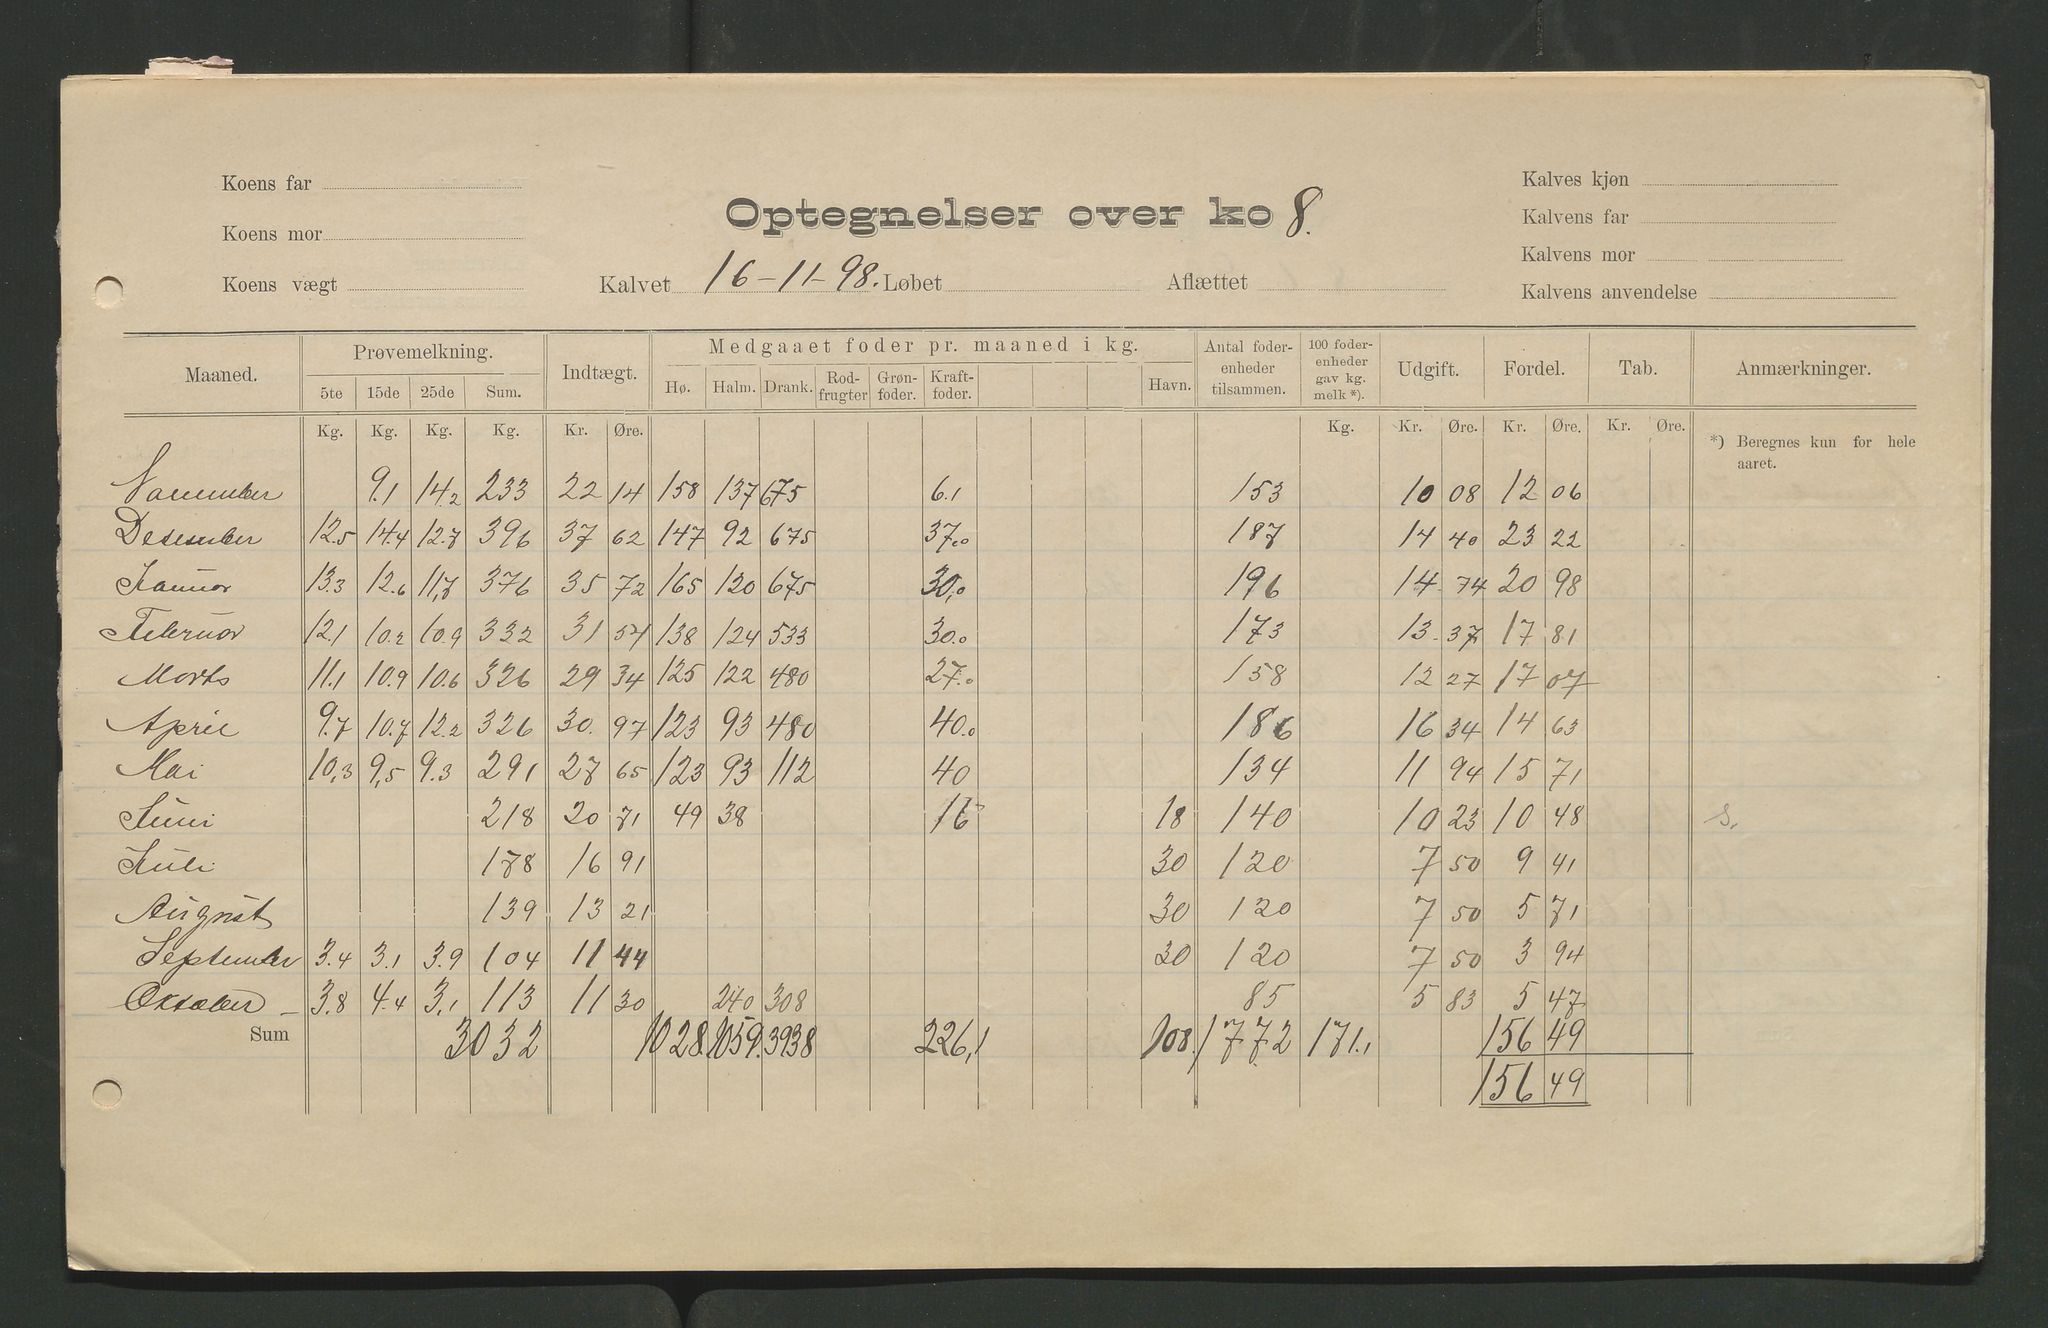 Koens far
Koens mor
Koens vægt
Optegnelser over ko 8.
Kalvet 16-11-98. Løbet Aflættet
Kalves kjøn
Kalvens far
Kalvens mor
Kalvens anvendelse
Maaned. Prøvemelkning. Indtægt. Medgaaet foder pr. maaned i kg. Antal foder-enheder tilsammen. 100 foder-enheder gav kg. melk *). Udgift. Fordel. Tab. Anmærkninger.
5te 15de 25de Sum. Hø. Halm. Drank. Rod-frugter Grøn-foder. Kraft-foder. Havn.
Kg. Kg. Kg. Kg. Kr. Øre. Kg. Kr. Øre. Kr. Øre. Kr. Øre. *) Beregnes kun for hele
aaret.
November 9.1 14.2 233 22 14 158 137 675 6.1 153 10 08 12 06
Desember 12.5 14.4 12.7 396 37 62 147 92 675 37.0 187 14 40 23 22
Januar 13.3 12.6 11,7 376 35 72 165 120 675 30,0 196 14 74 20 98
Februar 12.1 10.2 10.9 332 31 54 138 124 533 30.0 173 13 37 17 81
Marts 11.1 10.9 10.6 326 29 34 125 122 480 27.0 158 12 27 17 07
April 9.7 10.7 12.2 326 30. 97 123 93 480 40.0 186 16 34 14 63
Mai 10,3 9,5 9.3 291 27 65 123 93 112 40 134 11 94 15 71
Juni 218 20 71 49 38 16 18 140 10 23 10 48 S.
Juli 178 16 91 30 120 7 50 9 41
August 139 13 21 30 120 7 50 5 71
September 3.4 3.1 3.9 104 11 44 30 120 7 50 3 94
Oktober - 3.8 4.4 3,1 113 11 30 240 308 85 5 83 5 47
Sum 3032 1028. 1059. 3938 226,1 108. 1772 171.1 156 49
156 49